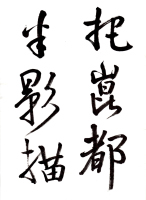 把崑都
半影描